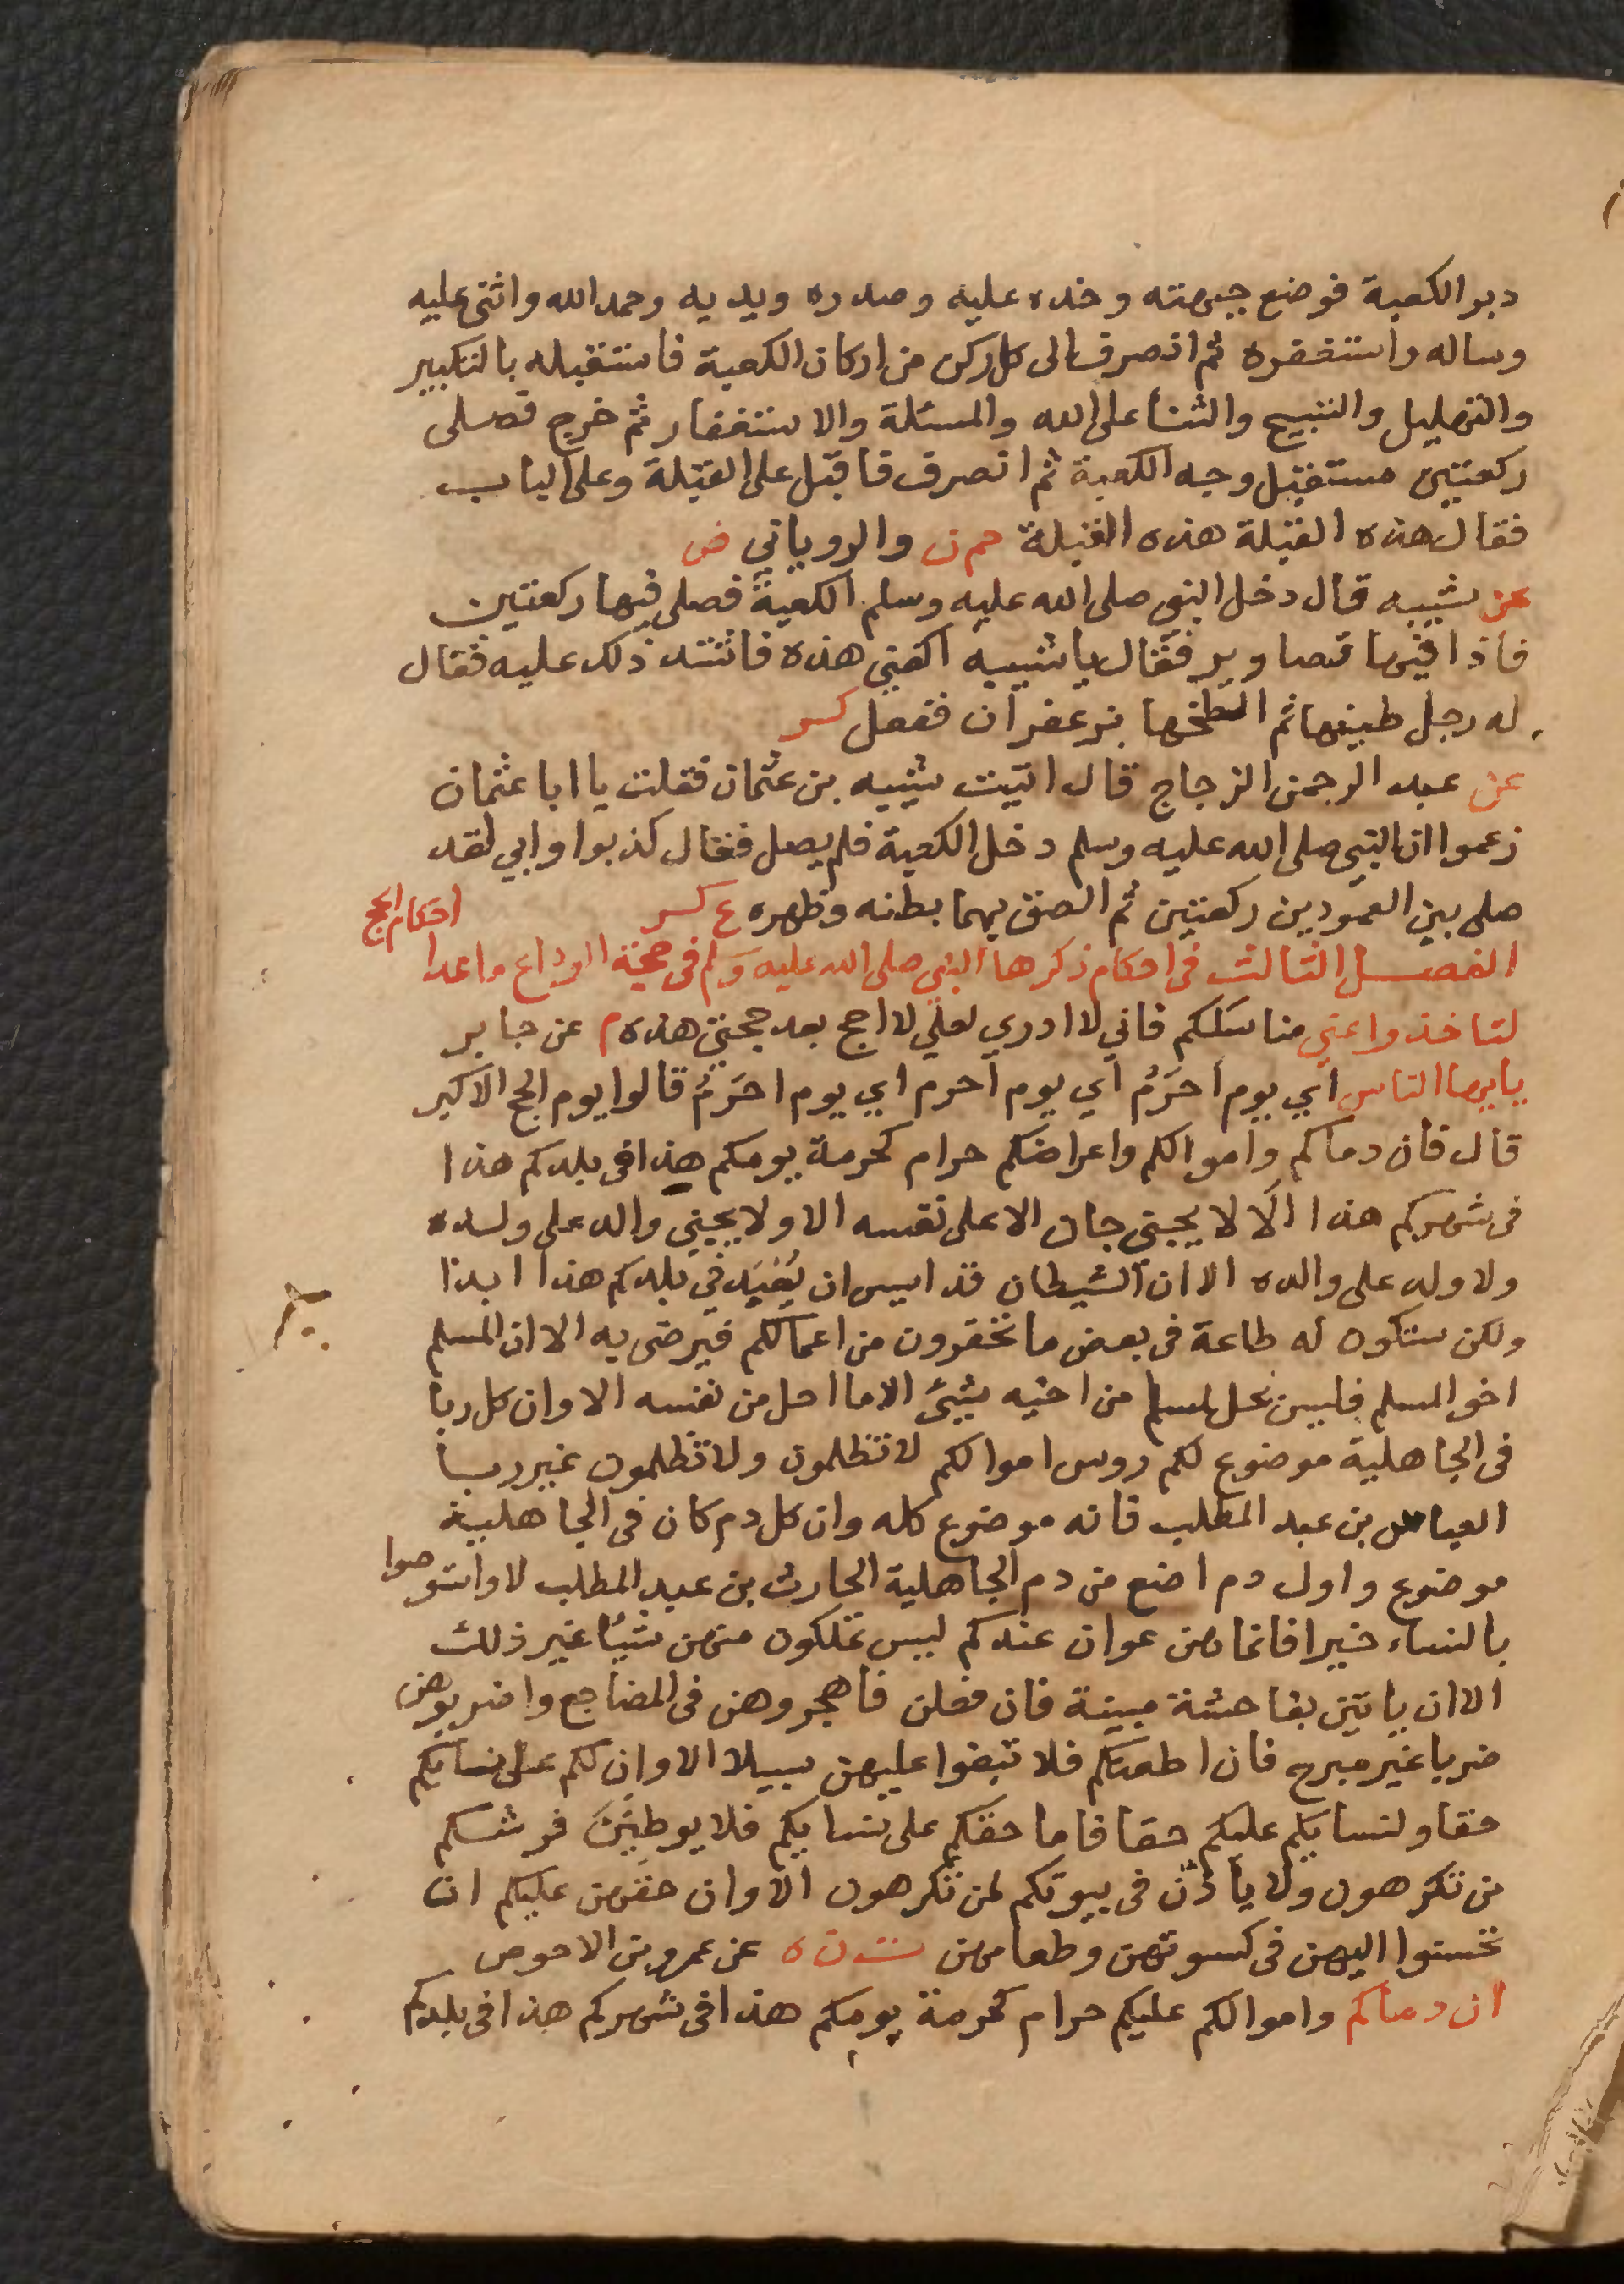 دبر الكعبة فوضع جبهته وخده عليه وصدره ويديه وحمد الله واثنى عليه
وساله واستغفره ثم انصرف الى كل ركن من اركان الكعبة فاستقبله بالتكبير
والتهليل والتسبيح والثنا على الله والمسئلة والاستغفار ثم خرج فصلى
ركعتين مستقبل وجه الكعبة ثم انصرف فاقبل على القبلة وعلى الباب
فقال هذه القبلة هذه القبلة حم ن والروياني ض
عن شيبه قال دخل النبى صلى الله عليه وسلم الكعبة فصلى فيها ركعتين
فاذا فيها تصاوير فقال يا شيبه اكفني هذه فاشتد ذلك عليه فقال
له رجل طينها ثم الطخها بزعفران ففعل كر
عن عبد الرحمن الزجاج قال اتيت شيبه بن عثمان فقلت يا ابا عثمان
زعموا ان النبي صلى الله عليه وسلم دخل الكعبة فلم يصل فقال كذبوا وابي لقد
صلى بين العمودين ركعتين ثم الصق بهما بطنه وظهره ع كر
احكام الحج
الفصل الثالث فى احكام ذكرها النبي صلى الله عليه وسلم فى حجة الوداع ماعدا
لتاخذوا عني مناسككم فاني لا ادري لعلي لا احج بعد حجتي هذه م عن جابر
يايها الناس اي يوم احَرمُ اي يوم احرم اي يوم احَرمُ قالوا يوم الحج الاكبر
قال فان دماكم واموالكم واعراضكم حرام كحرمة يومكم هذا فى بلدكم هذا
فى شهركم هذا الا لا يجني جان الا على نفسه الا ولا يجني والد على ولده
ولا ولد على والده الا ان الشيطان قد ايس ان يُعْبَد في بلدكم هذا ابدا
ولكن ستكون له طاعة فى بعض ما تحقرون من اعمالكم فيرضى به الا ان المسلم
اخو المسلم فليس يحل لمسلم من اخيه شيئ الا ما احل من نفسه الا وان كل ربا
فى الجاهلية موضوع لكم روس اموالكم لا تظلمون ولا تظلمون غير ربا
العباس بن عبد المطلب فانه موضوع كله وان كل دم كان فى الجاهلية
موضوع واول دم اضع من دم الجاهلية الحارث بن عبد المطلب لا واستوصوا
بالنساء خيرا فانما هن عوان عندكم ليس تملكون منهن شيئا غير ذلك
الا ان ياتين بفاحشة مبينة فان فعلن فاهجروهن فى المضاجع واضربوهن
ضربا غير مبرح فان اطعنكم فلا تبغوا عليهن سبيلا الا وان لكم على نسايكم
حقا ولنسايكم عليكم حقا فاما حقكم على نسايكم فلا يوطين فرشكم
من تكرهون ولا يأذنّ فى بيوتكم لمن تكرهون الا وان حقهن عليكم ان
تحسنوا اليهن فى كسوتهن وطعامهن ت ن ه عن عمرو بن الاحوص
ان دماكم واموالكم عليكم حرام كحرمة يومكم هذا فى شهركم هذا فى بلدكم